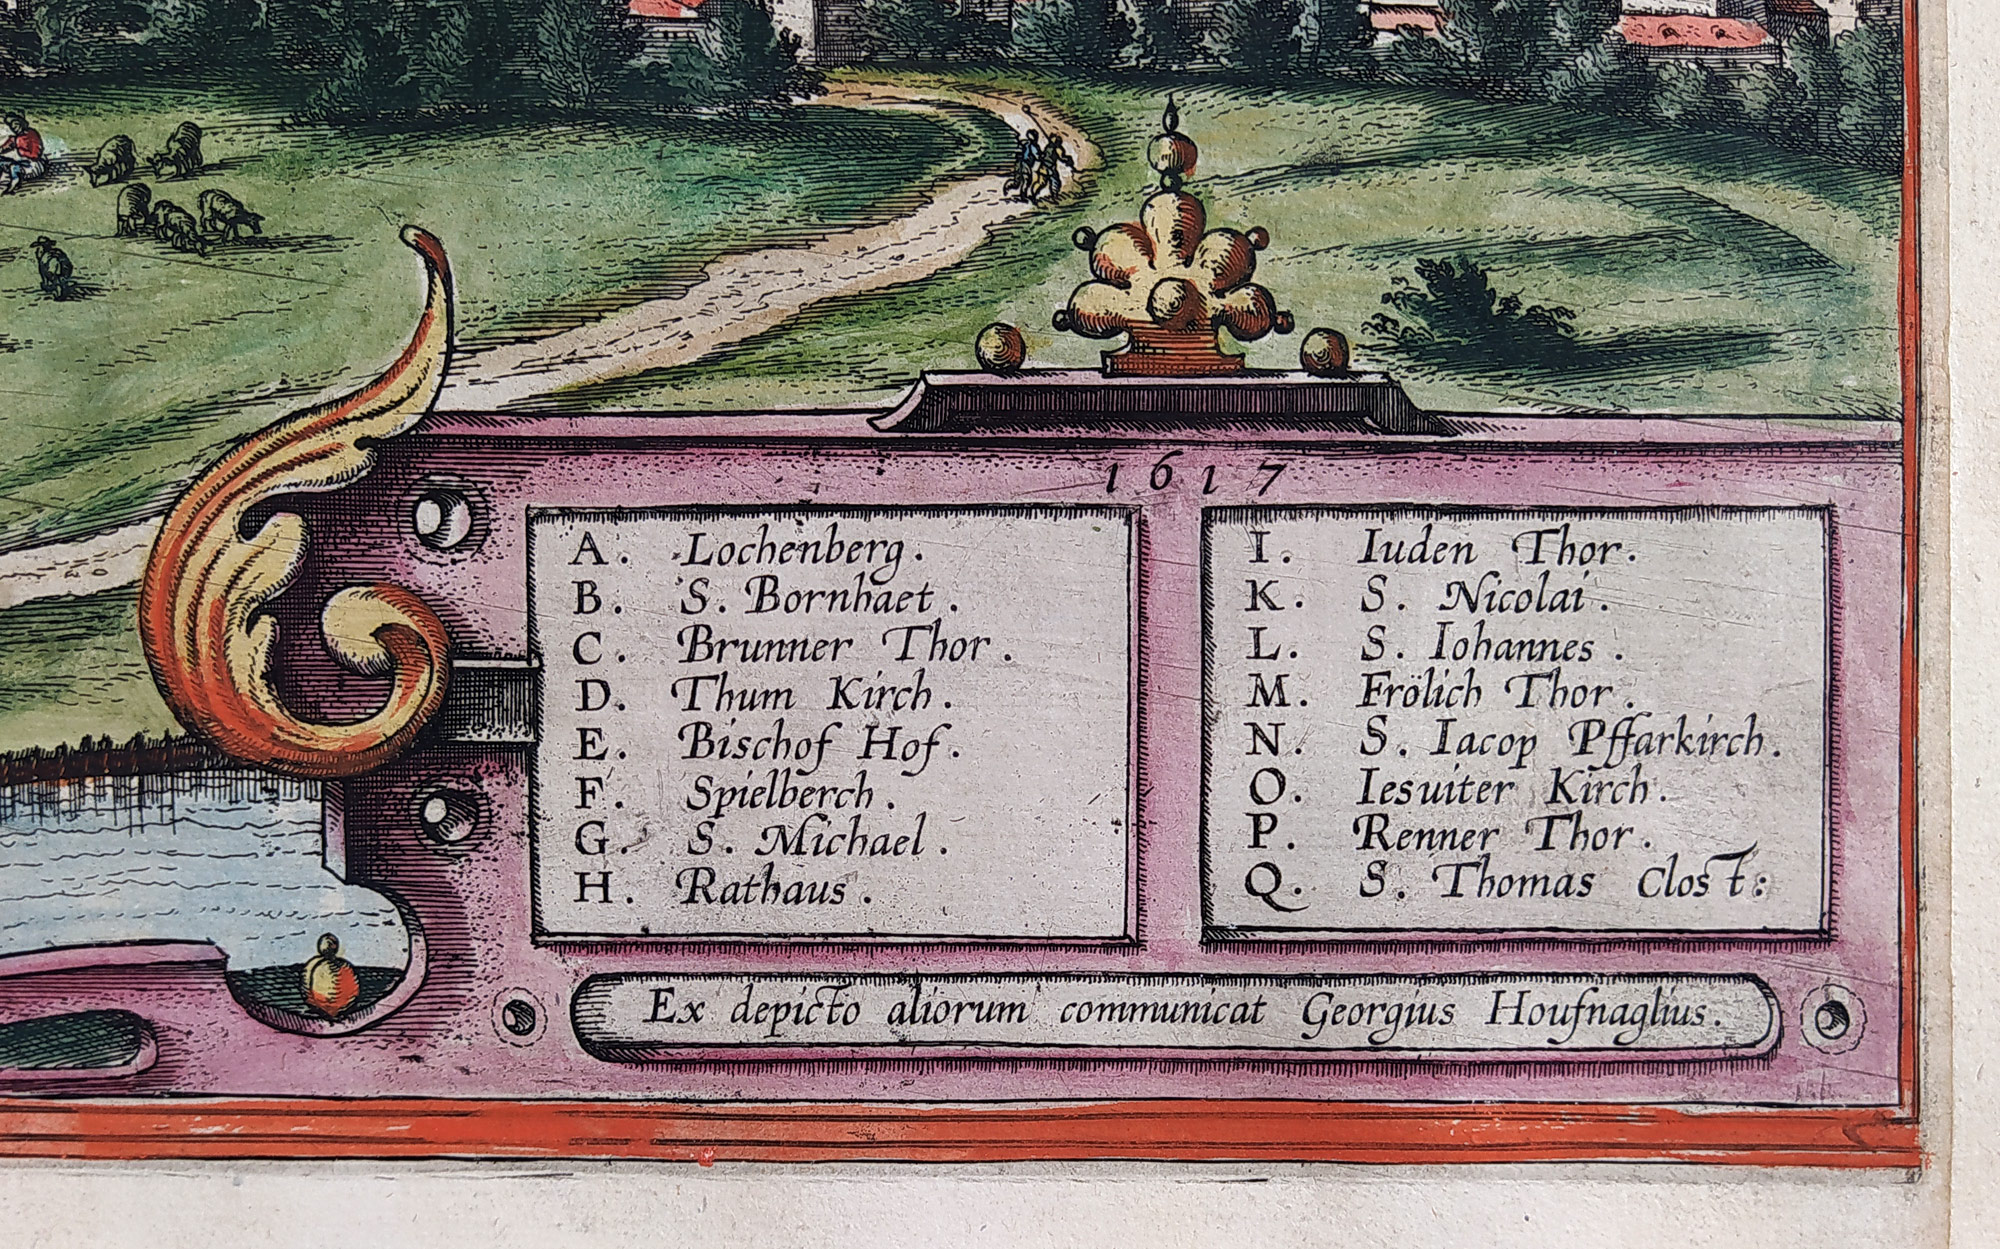 1617
A. Lochenberg.
B. S. Bornhaet.
C. Brunner Thor.
D. Thum Kirch.
E. Bischof Hof.
F. Spielberch.
G. S. Michael.
H. Rathaus.
I. Iuden Thor.
K. S. Nicolai.
L. S. Iohannes.
M. Frölich Thor.
N. S. Iacop Pffarkirch.
O. Iesuiter Kirch.
P. Renner Thor.
Q. S. Thomas Clost:
Ex depicto aliorum communicat Georgius Houfnaglius.